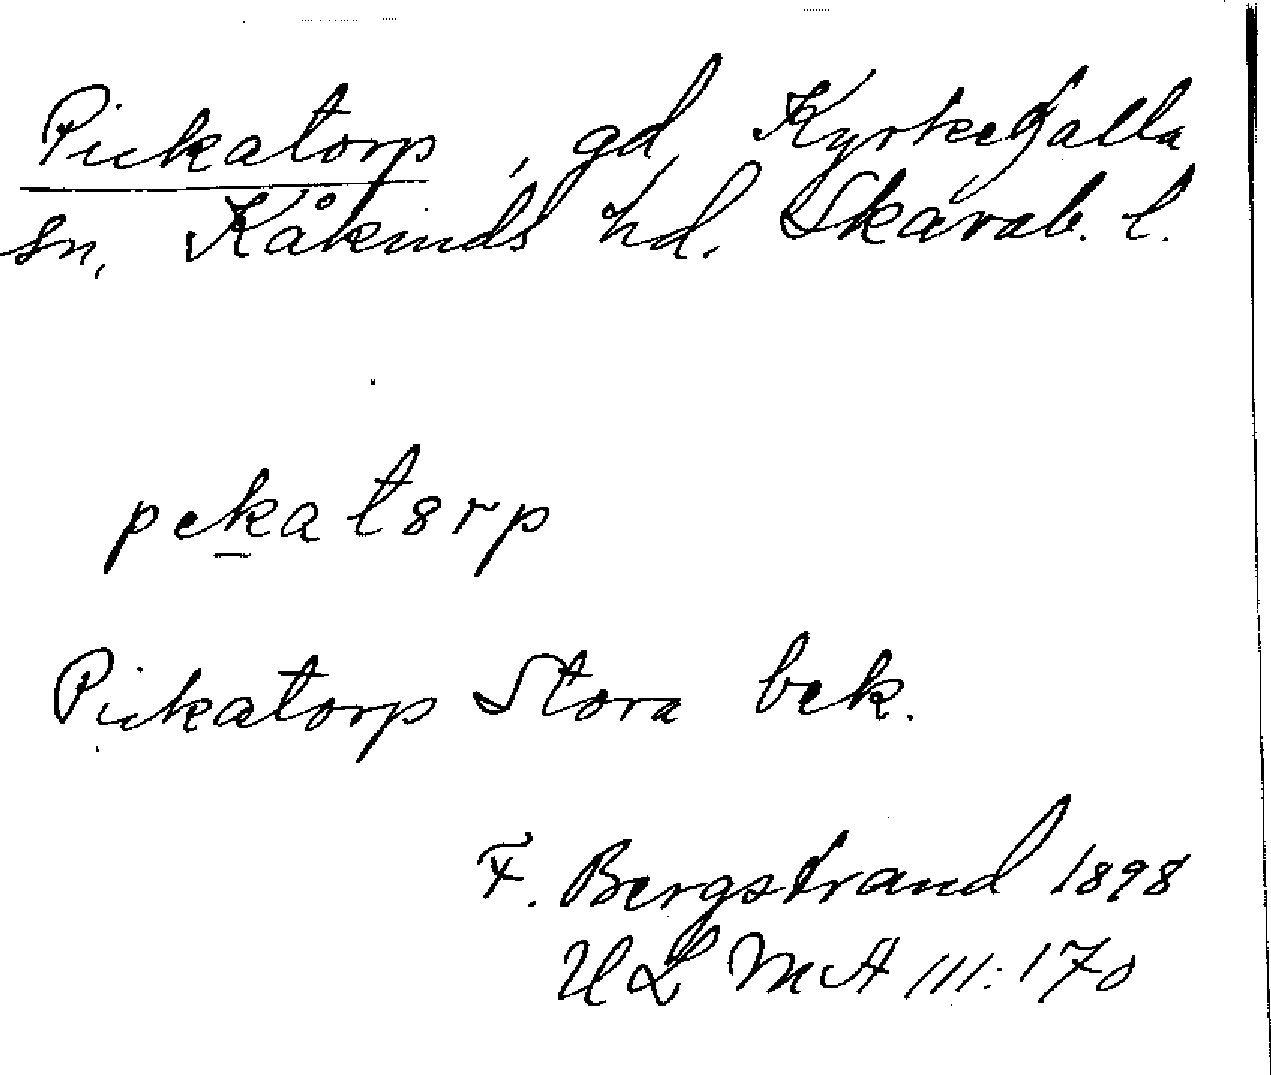 Pickatorp, gd, Kyrkefalla
sn, Kåkinds hd. Skarab. l.
pekatsrp
Pickatorp Stora bek.
F. Bergstrand 1898
ULMA 111:170